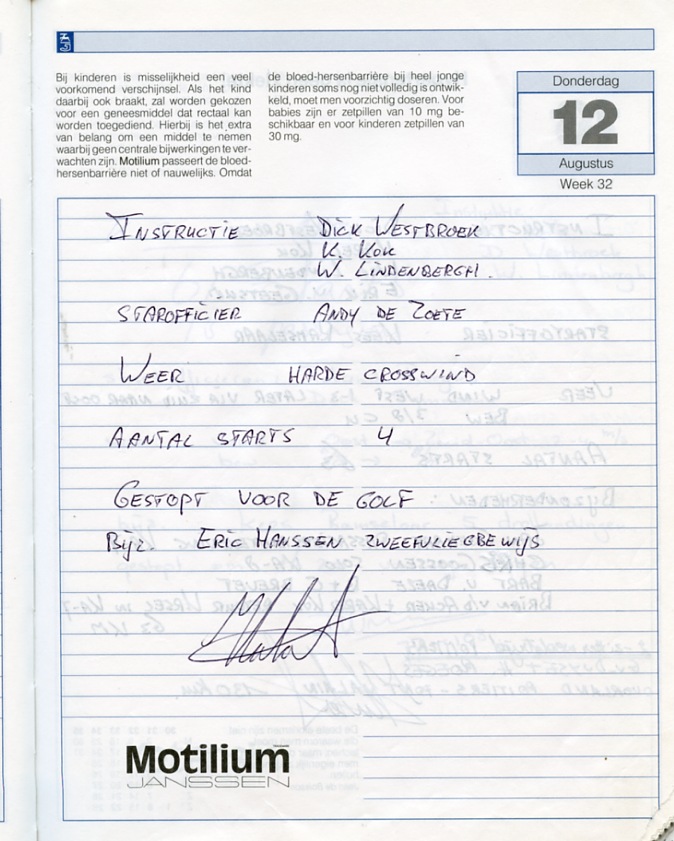 Bij kinderen is misselijkheid een veel
voorkomend verschijnsel. Als het kind
daarbij ook braakt, zal worden gekozen
voor een geneesmiddel dat rectaal kan
worden toegediend. Hierbij is het extra
van belang om een middel te nemen
waarbij geen centrale bijwerkingen te ver-
wachten zijn. Motilium passeert de bloed-
hersenbarrière niet of nauwelijks. Omdat
de bloed-hersenbarrière bij heel jonge
kinderen soms nog niet volledig is ontwik-
keld, moet men voorzichtig doseren. Voor
babies zijn er zetpillen van 10 mg be-
schikbaar en voor kinderen zetpillen van
30 mg.
Donderdag
12
Augustus
Week 32
INSTRUCTIE DICK WESTBROEK
K. KOK
W. LINDENBERGH.
STAROFFICIER ANDY DE ZOETE
WEER HARDE CROSSWIND
AANTAL STARTS 4
GESTOPT VOOR DE GOLF
Bijz. ERIC HANSSEN ZWEEFVLIEGBEWIJS
Motilium
JANSSEN